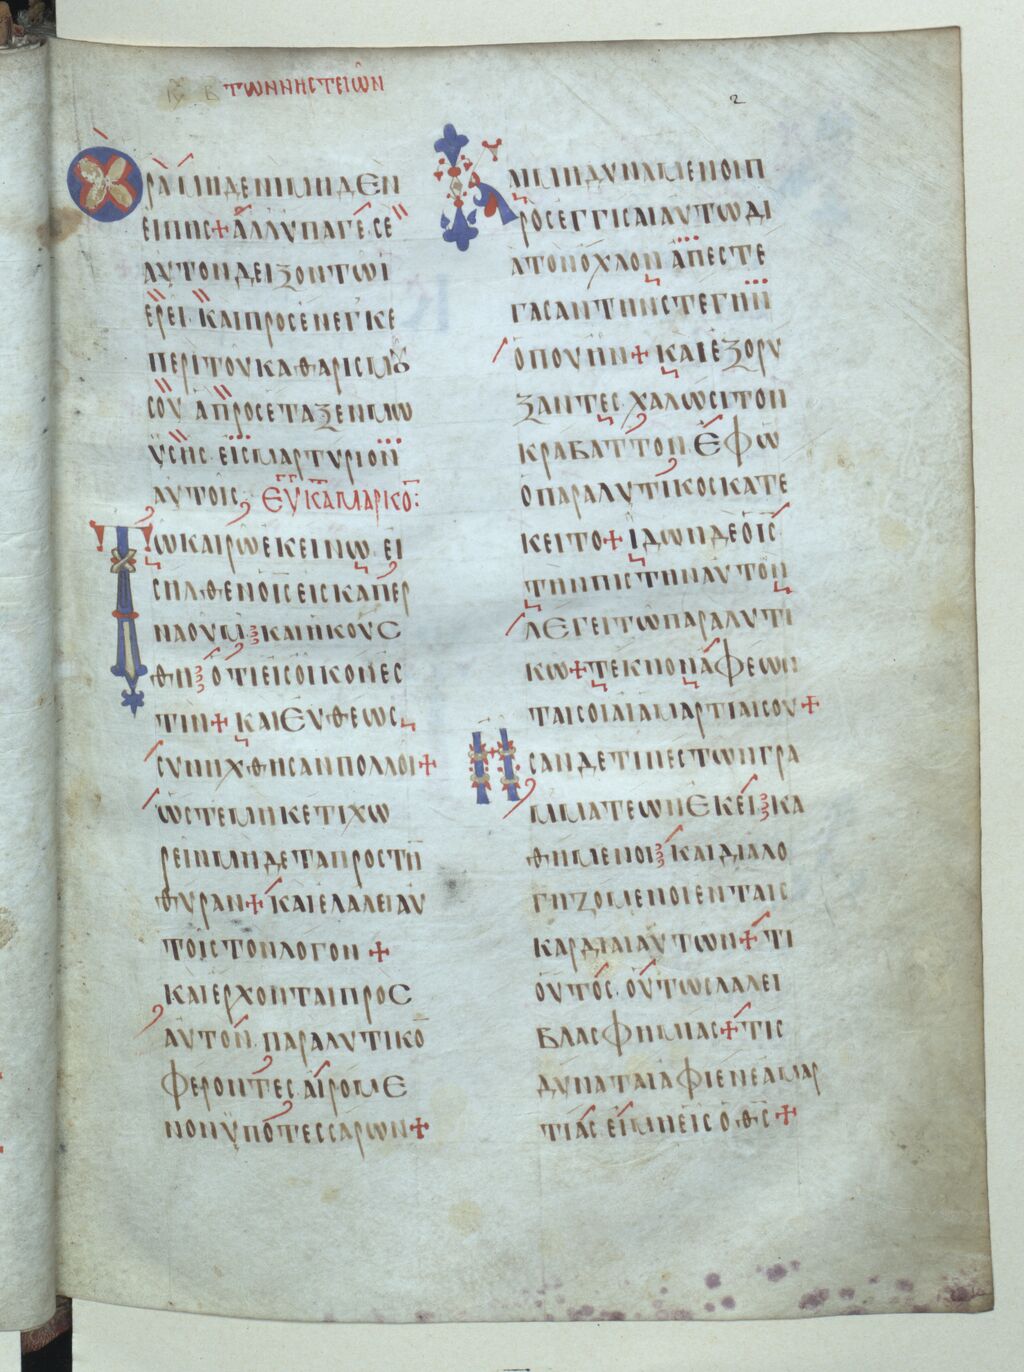 Κυ Β ΤΩΝ ΝΗΣΤΕΙΩΝ
2
ΟΡΑ ΜΗΔΕΝΙ ΜΗΔΕΝ
ΕΙΠΗΣ + ΑΛΛ ΥΠΑΓΕ ΣΕ
ΑΥΤΟΝ ΔΕΙΞΟΝ ΤΩ Ι
ΕΡΕΙ ΚΑΙ ΠΡΟΣΕΝΕΓΚΕ
ΠΕΡΙ ΤΟΥ ΚΑΘΑΡΙΣΜΟΥ
ΣΟΥ Α ΠΡΟΣΕΤΑΞΕΝ ΜΩ
ΥΣΗΣ ΕΙΣ ΜΑΡΤΥΡΙΟΝ
ΑΥΤΟΙΣ ΕΥ ΚΑ ΜΑΡΚΟ:
ΤΩ ΚΑΙΡΩ ΕΚΕΙΝΩ ΕΙ
ΣΗΛΘΕΝ Ο ΙΣ ΕΙΣ ΚΑΠΕΡ
ΝΑΟΥΜ ΚΑΙ ΗΚΟΥΣ
ΘΗ ΟΤΙ ΕΙΣ ΟΙΚΟΝ ΕΣ
ΤΙΝ + ΚΑΙ ΕΥΘΕΩΣ
ΣΥΝΗΧΘΗΣΑΝ ΠΟΛΛΟΙ +
ΩΣΤΕ ΜΗΚΕΤΙ ΧΩ
ΡΕΙΝ ΜΗΔΕ ΤΑ ΠΡΟΣ ΤΗΝ
ΘΥΡΑΝ + ΚΑΙ ΕΛΑΛΕΙ ΑΥ
ΤΟΙΣ ΤΟΝ ΛΟΓΟΝ +
ΚΑΙ ΕΡΧΟΝΤΑΙ ΠΡΟΣ
ΑΥΤΟΝ ΠΑΡΑΛΥΤΙΚΟ̅
ΦΕΡΟΝΤΕΣ ΑΙΡΟΜΕ
ΝΟΝ ΥΠΟ ΤΕΣΣΑΡΩΝ +
ΚΑΙ ΜΗ ΔΥΝΑΜΕΝΟΙ Π
ΡΟΣΕΓΓΙΣΑΙ ΑΥΤΩ ΔΙ
Α ΤΟΝ ΟΧΛΟΝ ΑΠΕΣΤΕ
ΓΑΣΑΝ ΤΗΝ ΣΤΕΓΗΝ
ΟΠΟΥ ΗΝ + ΚΑΙ ΕΞΟΡΥ
ΞΑΝΤΕΣ ΧΑΛΩΣΙ ΤΟΝ
ΚΡΑΒΑΤΤΟΝ ΕΦ Ω
Ο ΠΑΡΑΛΥΤΙΚΟΣ ΚΑΤΕ
ΚΕΙΤΟ + ΙΔΩΝ ΔΕ Ο ΙΣ
ΤΗΝ ΠΙΣΤΙΝ ΑΥΤΩΝ
ΛΕΓΕΙ ΤΩ ΠΑΡΑΛΥΤΙ
ΚΩ + ΤΕΚΝΟΝ ΑΦΕΩΝ
ΤΑΙ ΣΟΙ ΑΙ ΑΜΑΡΤΙΑΙ ΣΟΥ +
ΗΣΑΝ ΔΕ ΤΙΝΕΣ ΤΩΝ ΓΡΑ
ΜΜΑΤΕΩΝ ΕΚΕΙ ΚΑ
ΘΗΜΕΝΟΙ ΚΑΙ ΔΙΑΛΟ
ΓΗΖΟΜΕΝΟΙ ΕΝ ΤΑΙΣ
ΚΑΡΔΙΑΙ ΑΥΤΩΝ + ΤΙ
ΟΥΤΟΣ ΟΥΤΩΣ ΛΑΛΕΙ
ΒΛΑΣΦΗΜΙΑΣ + ΤΙΣ
ΔΥΝΑΤΑΙ ΑΦΙΕΝΕ ΑΜΑΡ
ΤΙΑΣ ΕΙ ΜΗ ΕΙΣ Ο ΘΣ +